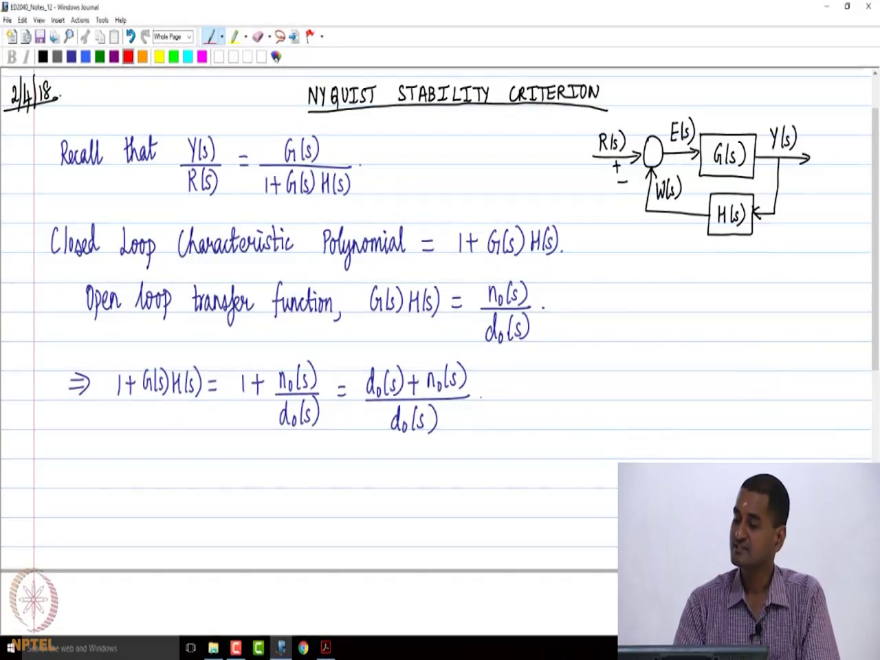 ED2040_Notes_12 - Windows Journal
File Edit View Insert Actions Tools Help
Whole Page
B I
2/4/18.
NYQUIST STABILITY CRITERION
Recall that Y(s)/R(s) = G(s)/1+G(s)H(s).
R(s) + - E(s) G(s) Y(s)
W(s) H(s)
Closed Loop Characteristic Polynomial = 1+G(s)H(s).
Open loop transfer function, G(s)H(s) = n₀(s)/d₀(s).
⇒ 1+G(s)H(s) = 1+ n₀(s)/d₀(s) = d₀(s)+n₀(s)/d₀(s).
NPTEL
the web and Windows